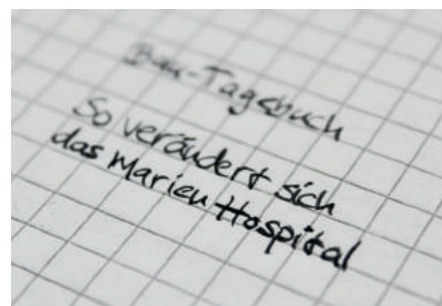 Bau-Tagsbuch
So verändert sich
das Marien Hospital